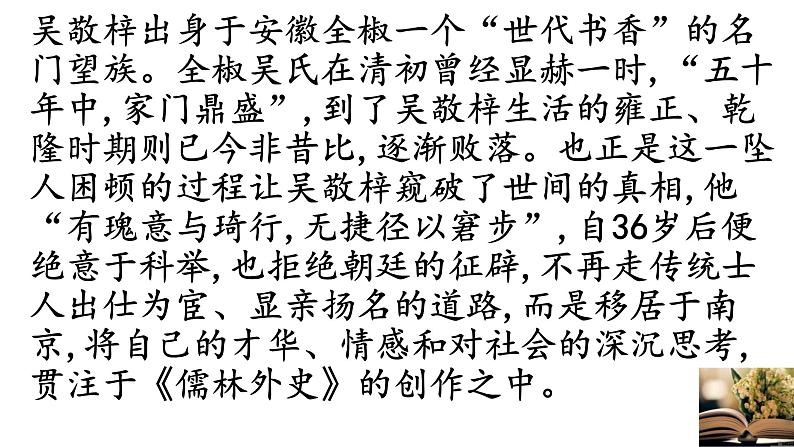 吴敬梓出身于安徽全椒一个“世代书香”的名
门望族。全椒吴氏在清初曾经显赫一时,“五十
年中,家门鼎盛”,到了吴敬梓生活的雍正、乾
隆时期则已今非昔比,逐渐败落。也正是这一坠
入困顿的过程让吴敬梓窥破了世间的真相,他
“有瑰意与琦行,无捷径以窘步”,自36岁后便
绝意于科举,也拒绝朝廷的征辟,不再走传统士
人出仕为宦、显亲扬名的道路,而是移居于南
京,将自己的才华、情感和对社会的深沉思考,
贯注于《儒林外史》的创作之中。